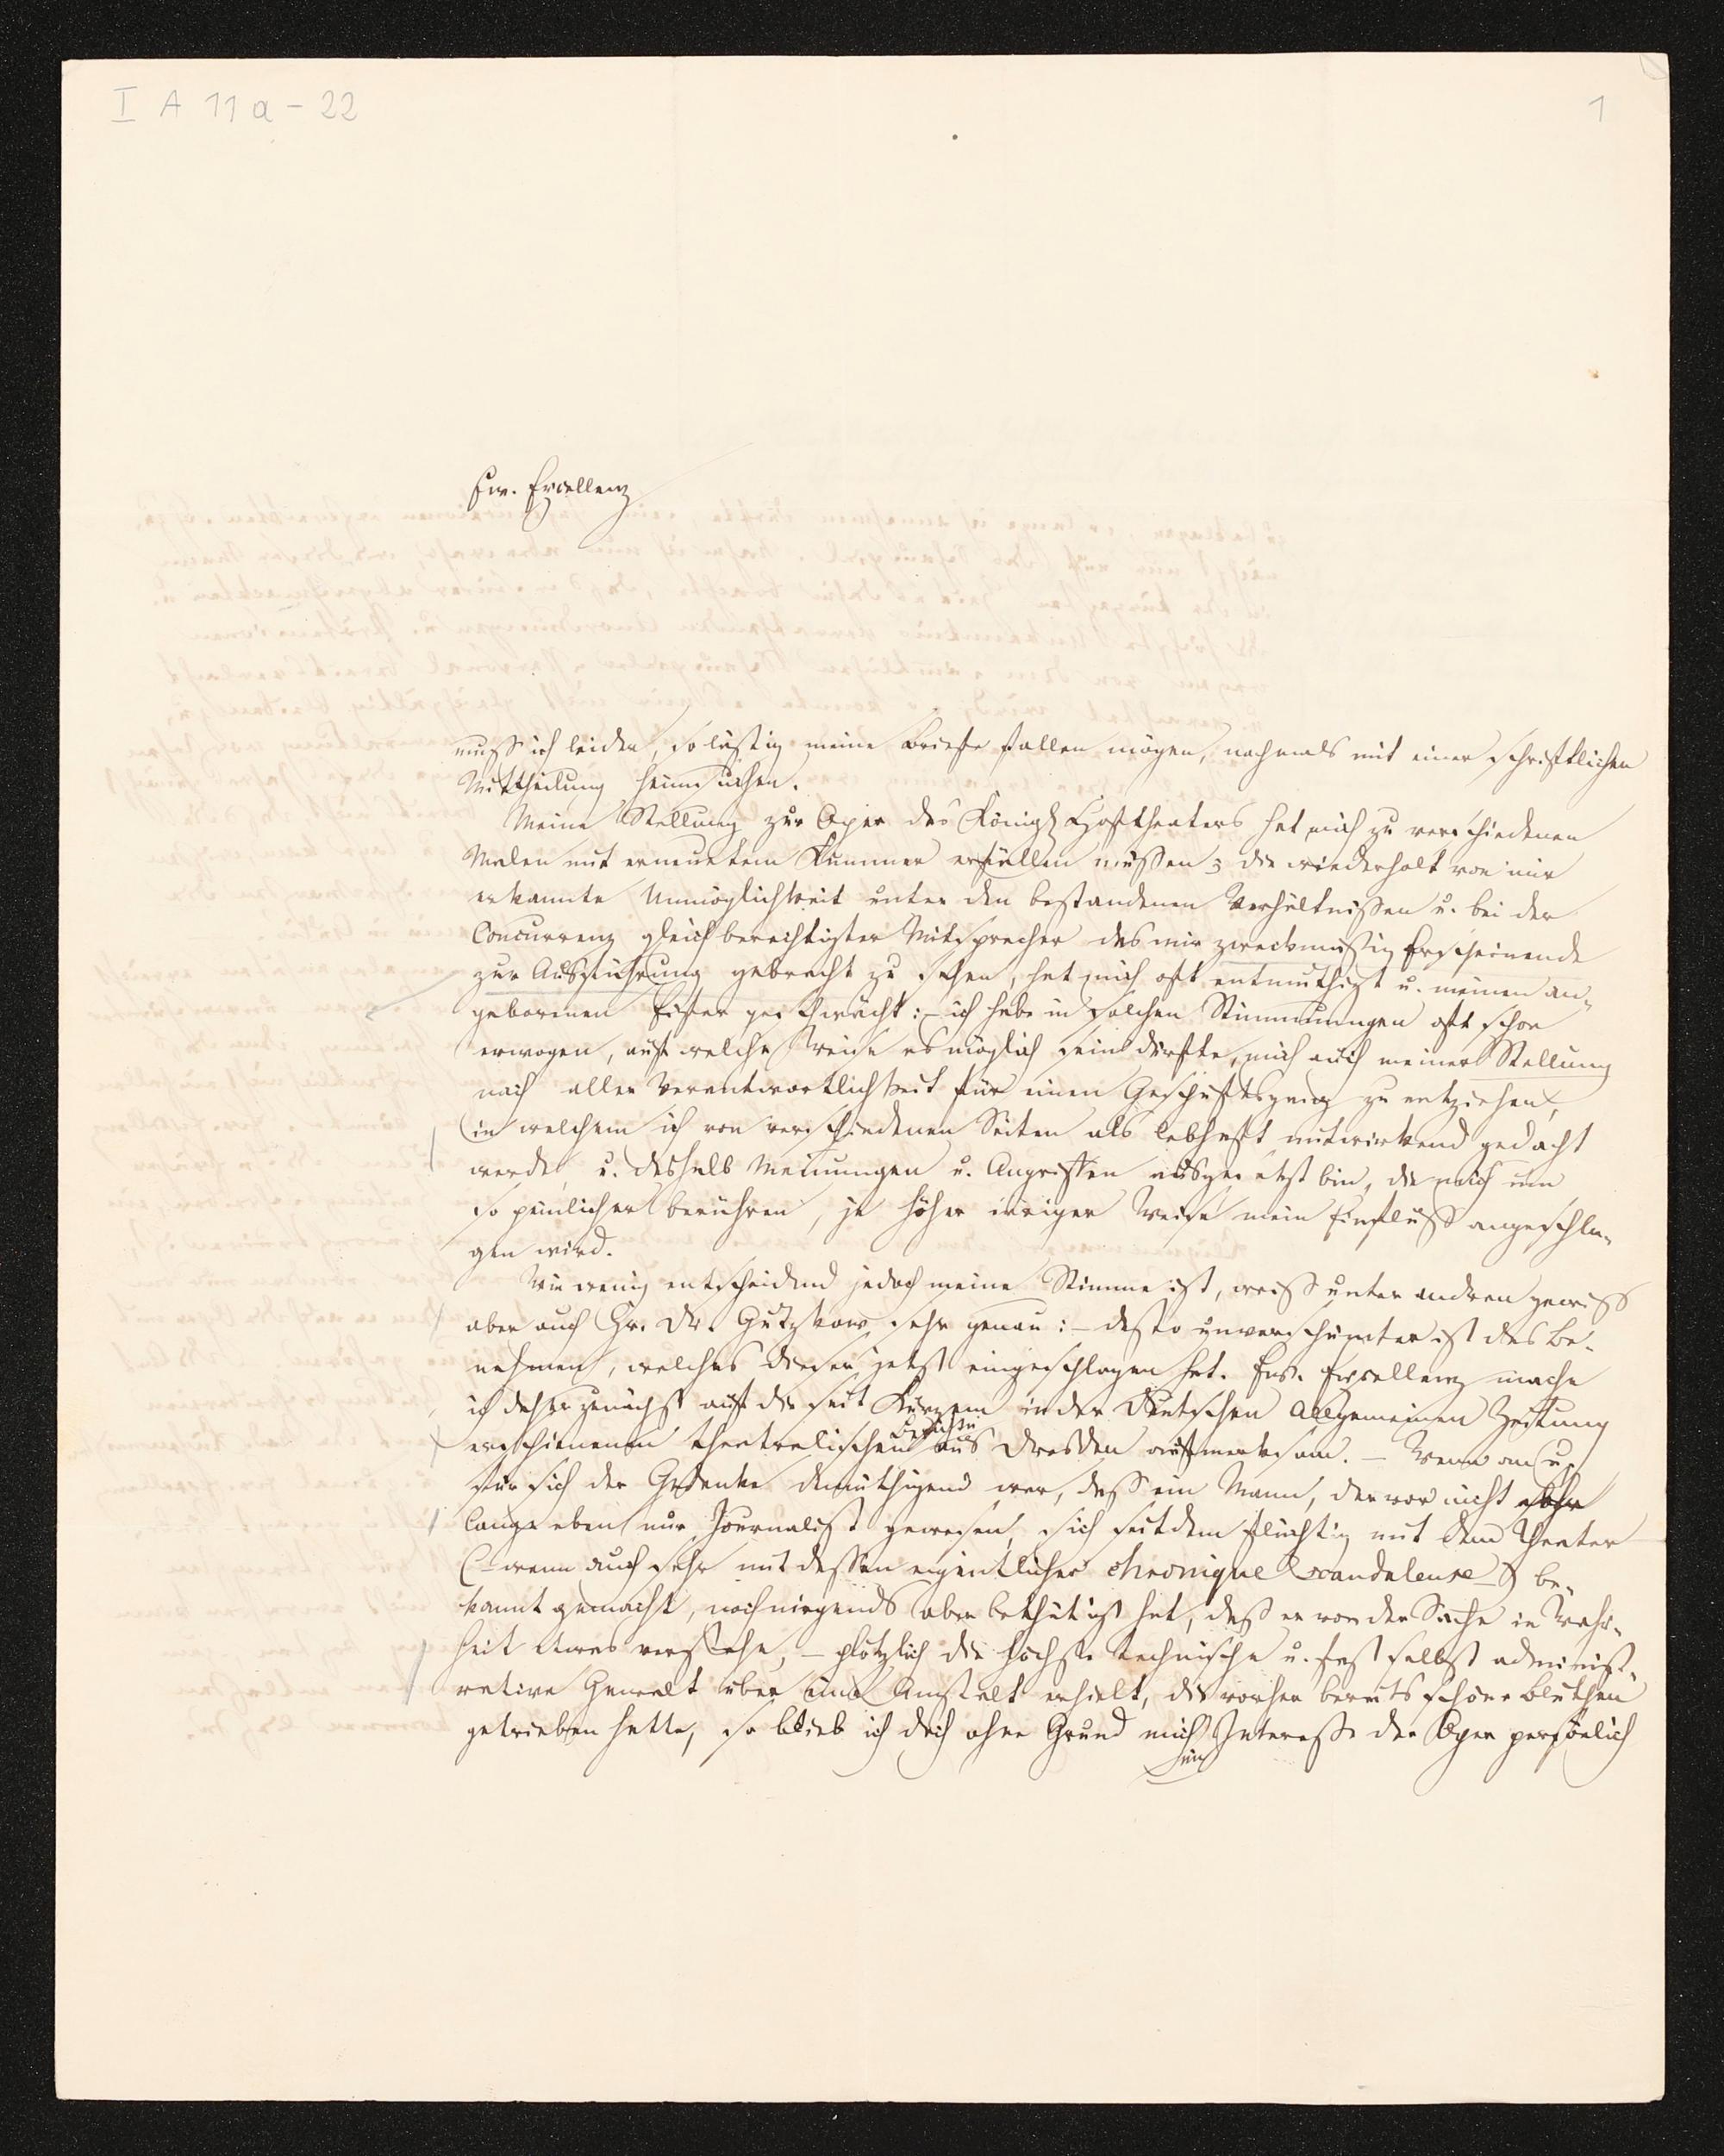 I A 11 a - 22
1
Ew. Excellenz
muss ich leider, so lästig meine Briefe fallen mögen, nochmals mit einer schriftlichen
Mittheilung heimsuchen.
Meine Stellung zur Oper des Königl. Hoftheaters hat mich zu verschiedenen
Malen mit erneuetem Kummer erfüllen müssen; die wiederholt von mir
erkannte Unmöglichkeit unter den bestandenen Verhältnissen u. bei der
Concurrenz gleich berechtigter Mitsprecher das mir zweckmässig Erscheinende
zur Ausführung gebracht zu sehen, hat mich oft entmuthigt u. meinen an-
geborenen Eifer geschwächt: – ich habe in solchen Stimmungen oft schon
erwogen, auf welche Weise es möglich sein dürfte, mich auch meiner Stellung
nach aller Verantwortlichkeit für einen Geschäftszweig zu entziehen,
in welchem ich von verschiedenen Seiten als lebhaft mitwirkend gedacht
werde, u. deshalb Meinungen u. Angriffen ausgesetzt bin, die mich um
so peinlicher berühren, je höher irriger Weise mein Einfluss angeschla-
gen wird.
Wie wenig entscheidend jedoch meine Stimme ist, weiss unter andren gewiss
aber auch Hr. Dr. Gutzkow sehr genau: – desto unverschämter ist das Be-
nehmen, welches dieser jetzt eingeschlagen hat. Ew. Excellenz mache
ich daher zunächst auf die seit Kurzem in der Deutschen Allgemeinen Zeitung
erschienenen theatralischen Berichte aus Dresden aufmerksam. – Wenn an u.
für sich der Gedanke demüthigend war, dass ein Mann, der vor nicht sehr
lange eben nur Journalist gewesen, sich seitdem flüchtig mit dem Theater
(– wenn auch sehr mit dessen eigentlicher chronique scandaleuse –) be-
kannt gemacht, noch nirgends aber bethätigt hat, dass er von der Sache in Wahr-
heit etwas verstehe, – plötzlich die höchste technische u. fast selbst administ-
rative Gewalt über eine Anstalt erhielt, die vorher bereits schöne Blüthen
getrieben hatte, so blieb ich doch ohne Grund mich im Interesse der Oper persönlich